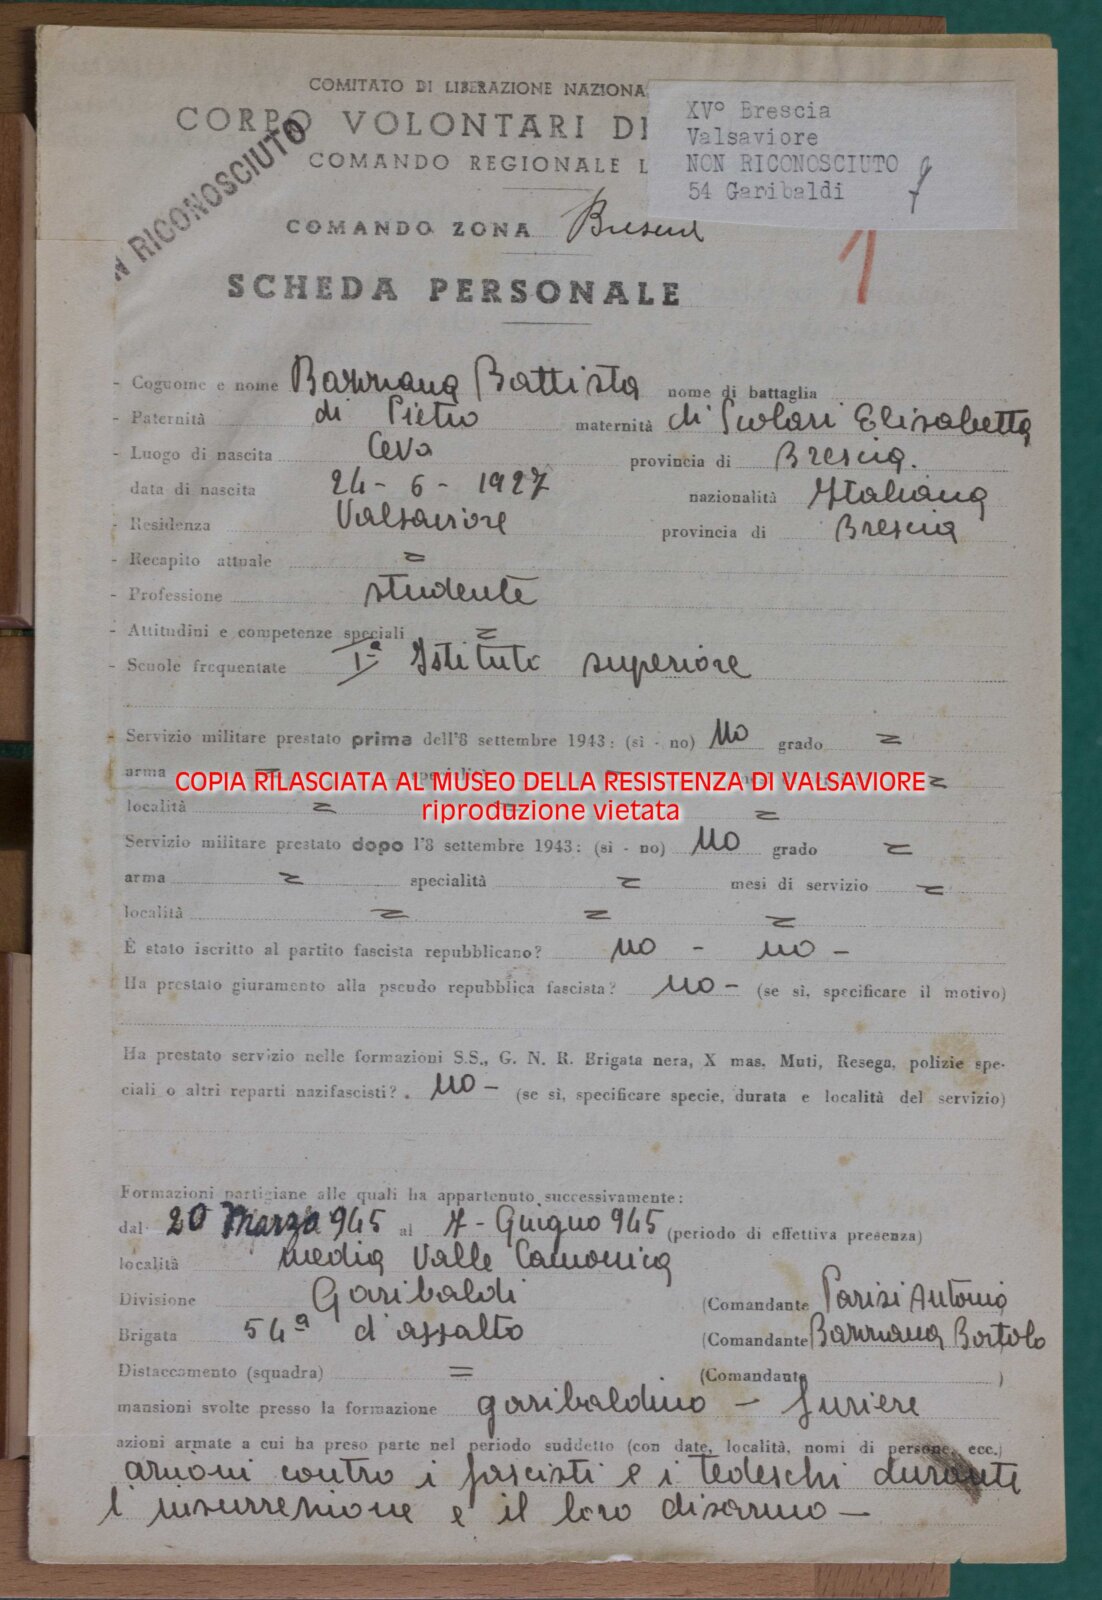 COMITATO DI LIBERAZIONE NAZIONA
CORPO VOLONTARI DE
COMANDO REGIONALE L
XVº Brescia
Valsaviore
NON RICONOSCIUTO
54 Garibaldi
N RICONOSCIUTO
COMANDO ZONA Brescia
1
SCHEDA PERSONALE
- Cognome e nome Bazzana Battista nome di battaglia
- Paternità di Pietro maternità di Scolari Elisabetta
- Luogo di nascita Cevo provincia di Brescia.
data di nascita 24 - 6 - 1927 nazionalità Italiana
- Residenza Valsaviore provincia di Brescia
- Recapito attuale =
- Professione studente
- Attitudini e competenze speciali =
- Scuole frequentate Iª Istituto superiore
- Servizio militare prestato prima dell'8 settembre 1943: (sì - no) no grado =
arma = specialità = =
COPIA RILASCIATA AL MUSEO DELLA RESISTENZA DI VALSAVIORE
riproduzione vietata
località = = =
Servizio militare prestato dopo l'8 settembre 1943: (sì - no) no grado =
arma = specialità = mesi di servizio =
località = = =
È stato iscritto al partito fascista repubblicano? no - no -
Ha prestato giuramento alla pseudo repubblica fascista? no - (se sì, specificare il motivo)
Ha prestato servizio nelle formazioni S.S., G. N. R. Brigata nera, X mas. Muti, Resega, polizie spe-
ciali o altri reparti nazifascisti? no - (se sì, specificare specie, durata e località del servizio)
Formazioni partigiane alle quali ha appartenuto successivamente:
dal 20 Marzo 945 al - Guigno 945 (periodo di effettiva presenza)
località media Valle Camonica
Divisione Garibaldi (Comandante Parisi Antonio
Brigata 54ª d'assalto (Comandante Bazzana Bortolo
Distaccamento (squadra) = (Comandante )
mansioni svolte presso la formazione garibaldino - furiere
azioni armate a cui ha preso parte nel periodo suddetto (con date, località, nomi di persone, ecc.)
azioni contro i fascisti e i tedeschi durante
l'insurrezione e il loro disarmo -